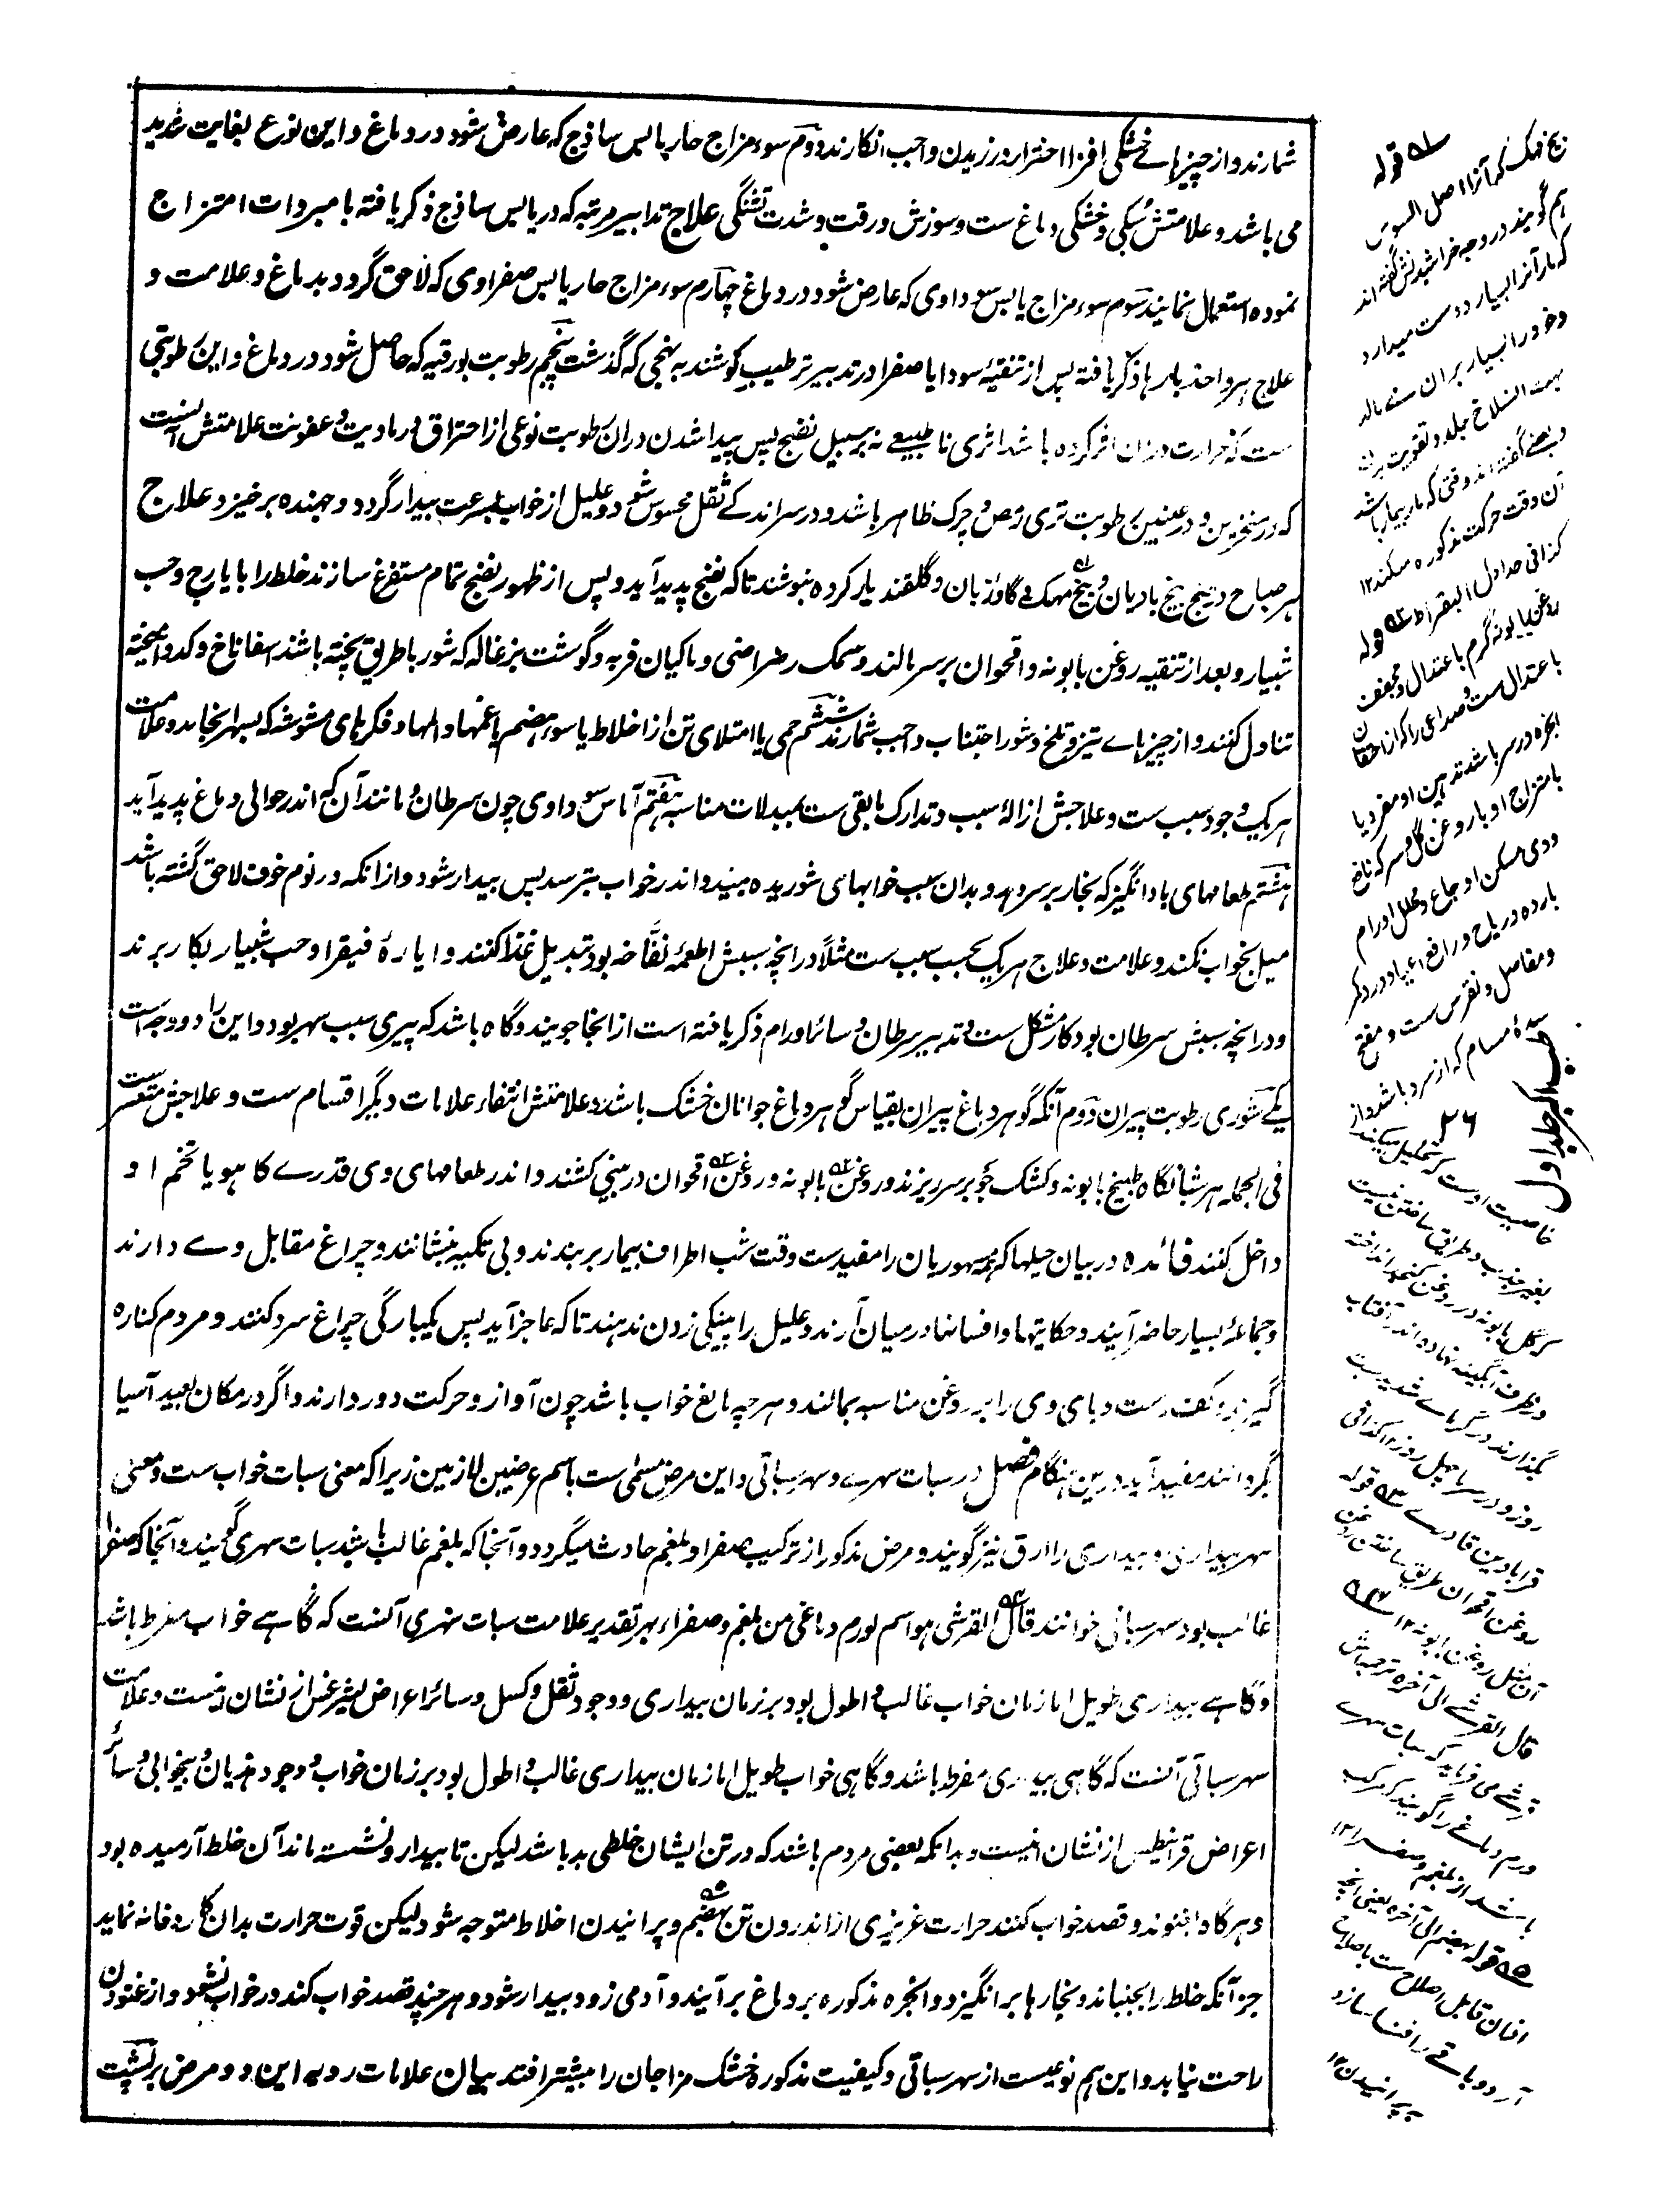 شمارند و از چیزهائے خشکی افزا احتراز ورزیدن واجب انکارند دوم سوء مزاج حار یابس ساذج که عارض شود در دماغ و این نوع بغایت شدید
می باشد و علامتش سبکی و خشکی دماغ ست و سوزش و رقت و شدت تشنگی علاج تدابیر مرتبه که در یابس ساذج ذکر یافته با مبردات امتزاج
نموده استعمال نمایند سوم سوء مزاج یابس سوداوی که عارض شود در دماغ چهارم سوء مزاج حار یابس صفراوی که لاحق گردد بدماغ و علامت و
علاج هر واحد بارها ذکر یافته پس از تنقیهٔ سودا یا صفرا در تدبیر ترطیب کوشند به نهجی که گذشت پنجم رطوبت بورقیه که حاصل شود در دماغ و این رطوبتی
ست که حرارت در آن اثر کرده باشد اثری نا طبیعے نه بر سبیل نضج پس پیدا شدن در آن رطوبت نوعی از احتراق و رمادیت و عفونت علامتش آنست
که در منخرین و در عینین رطوبت تری رمص و چرک ظاهر باشد و در سر اندکے ثقل محسوس شود و علیل از خواب بسرعت بیدار گردد و جهنده برخیزد علاج
هر صباح در پنج بیخ بادیان و بیخ مهک و گاوزبان و گلقند یار کرده بنوشند تا که نضج پدید آید و پس از ظهور نضج تمام مستفرغ سازند خلط را بایارج و حب
شبیار و بعد از تنقیه روغن بابونه و اقحوان بر سر مالند و سمک رضراضی و ماکیان فربه و گوشت بزغاله که شوربا طریق پخته باشند اسفاناخ و کدو آمیخته
تناول کنند و از چیزهاے تیز و تلخ و شور اجتناب واجب شمارند ششم حمی یا امتلای تن از اخلاط یا سوء هضم یا غمها و المها و فکرهای مشوشه که بسهر انجامد و علامت
هریک وجود سبب ست و علاجش ازالهٔ سبب و تدارک مابقی ست بمبدلات مناسبه هفتم آماس سوداوی چون سرطان و مانند آن که اندر حوالی دماغ پدید آید
هشتم طعامهای باد انگیز که بخار بر سر دهد و بدان سبب خوابهای شوریده بیند و اندر خواب بترسد پس بیدار شود و از آنکه در نوم خوف لاحق گشته باشد
میل بخواب نکند و علامت و علاج هریک بحسب سبب ست مثلاً در انچه سببش اطعمهٔ نفّاخه بود تبدیل غذا کنند و ایارهٔ فیقرا و حب شبیار بکار برند
و در انچه سببش سرطان بود کار مشکل ست و تدبیر سرطان و سائر اورام ذکر یافته است از انجا جویند و گاه باشد که پیری سبب سهر بود و این را دو وجه است
یکے شوری رطوبت پیران دوم آنکه گوهر دماغ پیران بقیاس گوهر دماغ جوانان خشک باشد و علامتش انتفاء علامات دیگر اقسام ست و علاجش متعسر ست
فی الجمله هر شبانگاه طبیخ بابونه و کشک جو بر سر ریزند و روغن بابونه و روغن اقحوان در بینی کشند و اندر طعامهای وی قدرے کاهو یا تخم او
داخل کنند فائده در بیان حیلها که همه سهریان را مفید ست وقت شب اطراف بیمار بر بندند و بی تکیه بنشانند و چراغ مقابل وے دارند
و جماعهٔ بسیار حاضر آیند و حکایتها و افسانها در میان آرند و علیل را پینکی زدن ندهند تا که عاجز آید پس یکبارگی چراغ سرد کنند و مردم کناره
گیرند و کف دست و پای وی را به روغن مناسبه بمالند و هرچه مانع خواب باشد چون آواز و حرکت دور دارند و اگر در مکان بعید آسیا
گردانند مفید آید درین هنگام فصل در سبات سهرے و سهر سباتی و این مرض مسمی است باسم عرضین لازمین زیرا که معنی سبات خواب ست و معنی
سهر بیداری و بیداری را ارق نیز گویند و مرض مذکور از ترکیب صفرا و بلغم حادث میگردد و آنجا که بلغم غالب باشد سبات سهری گویند و آنجا که صفرا
غالب بود سهر سباتی خوانند قال القرشی هو اسم لورم دماغی من بلغم و صفراء بهر تقدیر علامت سبات سهری آنست که گاهے خواب مفرط باشد
و گاهے بیداری طویل اما زمان خواب غالب و اطول بود بر زمان بیداری و وجود ثقل و کسل و سائر اعراض لیثرغس از نشان اینست و علامت
سهر سباتی آنست که گاهی بیداری مفرط باشد و گاهی خواب طویل اما زمان بیداری غالب و اطول بود بر زمان خواب و وجود هذیان و بیخوابی و سائر
اعراض قرانیطس از نشان اینست و بدانکه بعضی مردم باشند که در تن ایشان خلطی بد باشد لیکن تا بیدار و نشسته ماند آن خلط آرمیده بود
و هرگاه بغنوند و قصد خواب کنند حرارت غریزی از اندرون تن بهضم و پزانیدن اخلاط متوجه شود لیکن قوت حرارت بدان کار وفا نه نماید
جز آنکه خلط را بجنباند و بخارها بر انگیزد و ابخره مذکوره بر دماغ بر آیند و آدمی زود بیدار شود و هر چند قصد خواب کند در خواب نشود و از غنودن
راحت نیابد و این هم نوعیست از سهر سباتی و کیفیت مذکوره خشک مزاجان را بیشتر افتد بیان علامات ردیه این دو مرض بر پشت
قوله
بیخ مهک که آنرا اصل السوس
هم گویند در وجه خراشیدنش گفته اند
که مار آنرا بسیار دوست میدارد
و خود را بسیار بر آن مے مالد
بهت انسلاخ جلد و تقویت بدن
و بعضے گفته اند وقتی که مار بیمار باشد
آن وقت حرکت مذکوره میکند ۱۲
قوله
روغن بابونه گرم باعتدال و مجفف
باعتدال ست و صداعی را که از احتقان
ابخره در سر باشد تدهین او مفرد یا
بامتزاج او با روغن گل و سرکه نافع
و وی مسکن اوجاع و محلل اورام
بارده و ریاح و رافع اعیا و درد کمر
و مفاصل و نقرس ست و مفتح
سدهٔ مسام که از سرد باشد و از
خاصیت اوست که تحلیل میکند
بغیر جذب و طریق ساختن اینست
که گل بابونه در روغن کنجد انداخته
در ظرف آبگینه نهاده اندر آفتاب
بگذارند در گرماے شدید بیست
روز و در سرما چهل روز ۱۲ کذا فی
قرابادین قادرے قوله
روغن اقحوان طریق ساختن روغن
آن مثل روغن بابونه ۱۲
قال القرشے الی آخره ترجمه اش
قرشے می فرماید که سبات سهرے
ورم دماغے را گویند که مرکب
باشد از بلغم و صفرا ۱۲
قوله بهضم الی آخره یعنی انچه
از آن قابل اصلاح ست باصلاح
آرد و باقے را فنا سازد
بپزانیدن ۱۲
۲۶
طب اکبر جلد اول